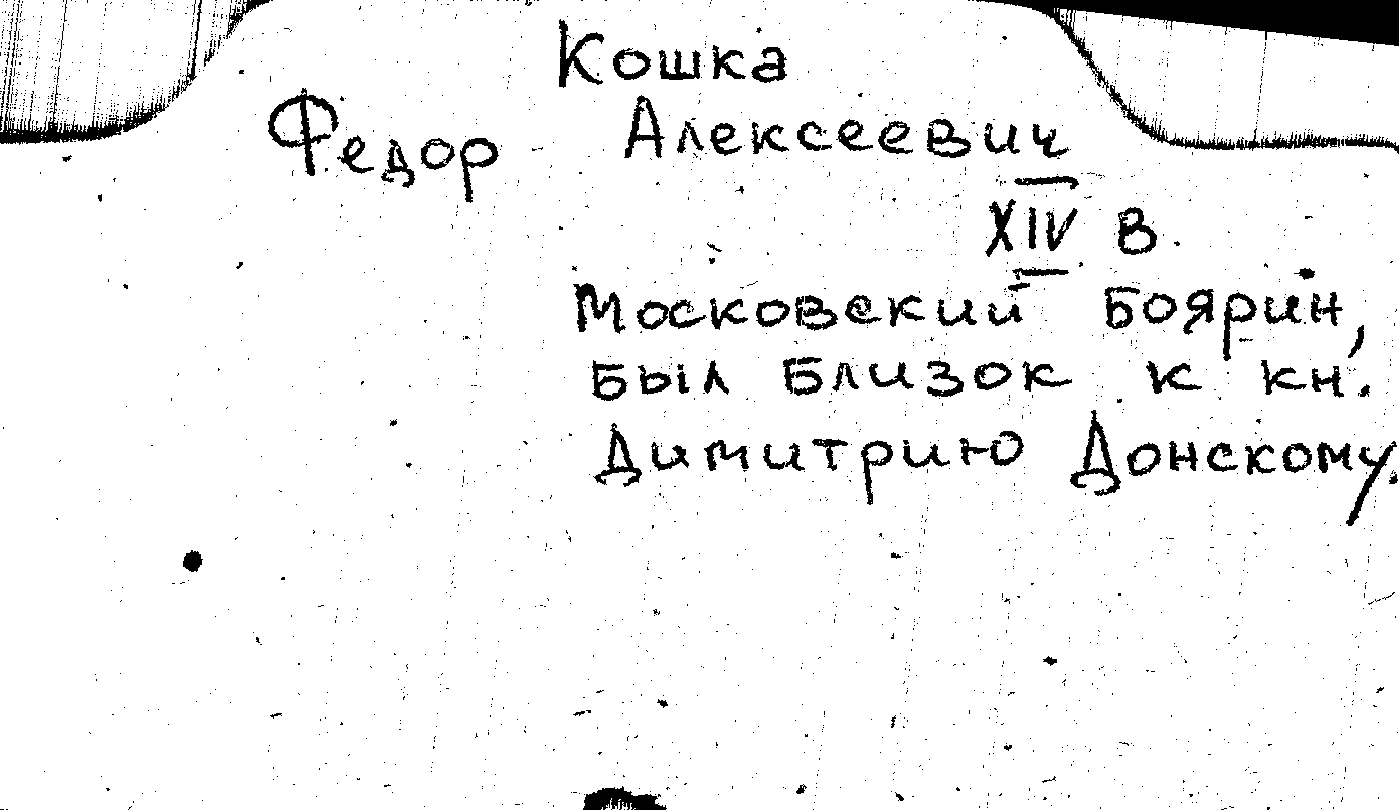 Кошка
Федор Алексеевич
XIV в.
Московский боярин,
был близок к кн.
Димитрию Донскому.